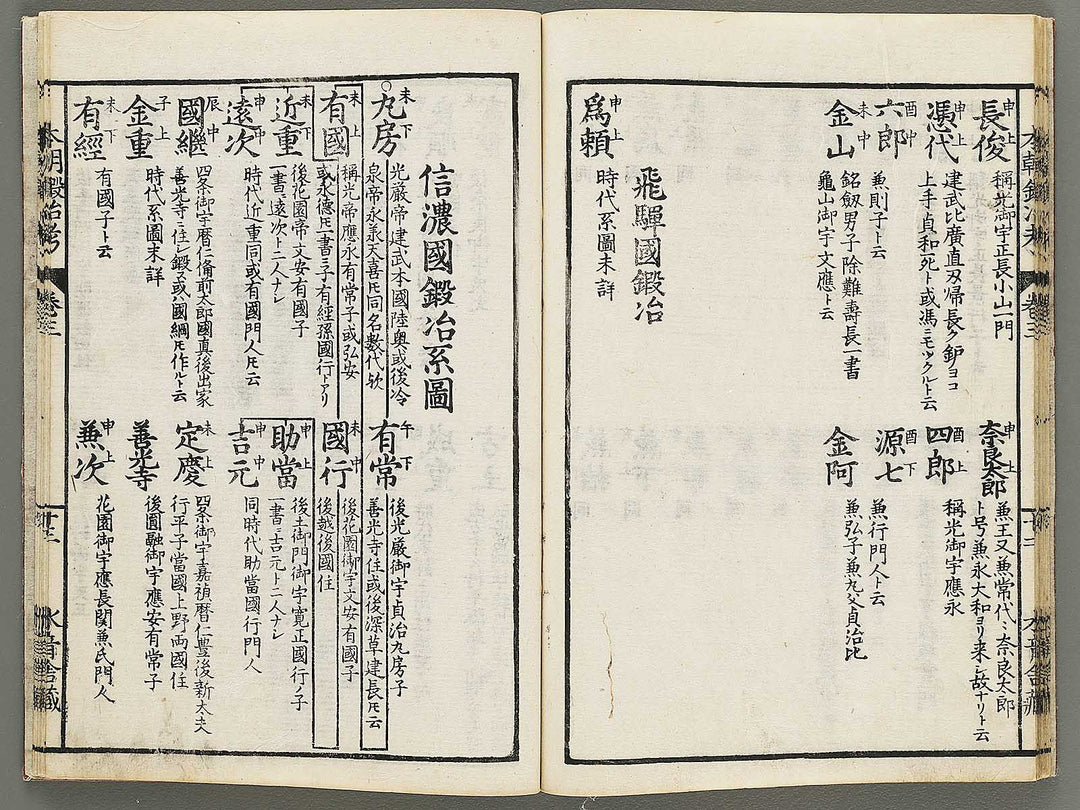 長俊 申上
稱光御宇正長小山一門
奈良太郎 申上
兼王又兼常代々奈良太郎
ト号兼永大和ヨリ来ル故ナリト云
憑代 申上
建武比廣直刃帰長ク鈩ヨコ
上手貞和死ト或馮ニモツクルト云
四郎 酉上
稱光御宇應永
六郎 酉中
兼則子ト云
源七 酉下
兼行門人ト云
金山 未中
銘劔男子除難壽長一書
龜山御宇文應ト云
金阿
兼弘子兼九父貞治比
飛驒國鍛冶
爲賴 申上
時代系圖未詳
信濃國鍛冶系圖
九房 未下
光嚴帝建武本國陸奥或後冷
泉帝永承天喜氏同名數代欤
有常 午下
後光嚴御宇貞治九房子
善光寺住或後深草建長氏云
有國 未上
稱光帝應永有常子或弘安
或永德氏一書ニ子有經孫國行トアリ
國行 未中
後花園御宇文安有國子
後越後國住
近重 未下
後花園帝文安有國子
一書ニ遠次ト二人ナシ
助當 申上
後土御門御宇寛正國行ノ子
一書ニ吉元ト二人ナシ
遠次 申中
時代近重同或有國門人氏云
吉元 申中
同時代助當國行門人
國繼 辰中
四条御宇暦仁備前太郎國真後出家
善光寺ニ住シ鍛ヌ或ハ國綱氏作ルト云
定慶 未上
四条御宇嘉禎暦仁豊後新太夫
行平子當國上野両國住
金重 子上
時代系圖未詳
善光寺
後圓融御宇應安有常子
有經 未下
有國子ト云
兼次 申上
花園御宇應長関兼氏門人
本朝鍛冶考
卷三
十二